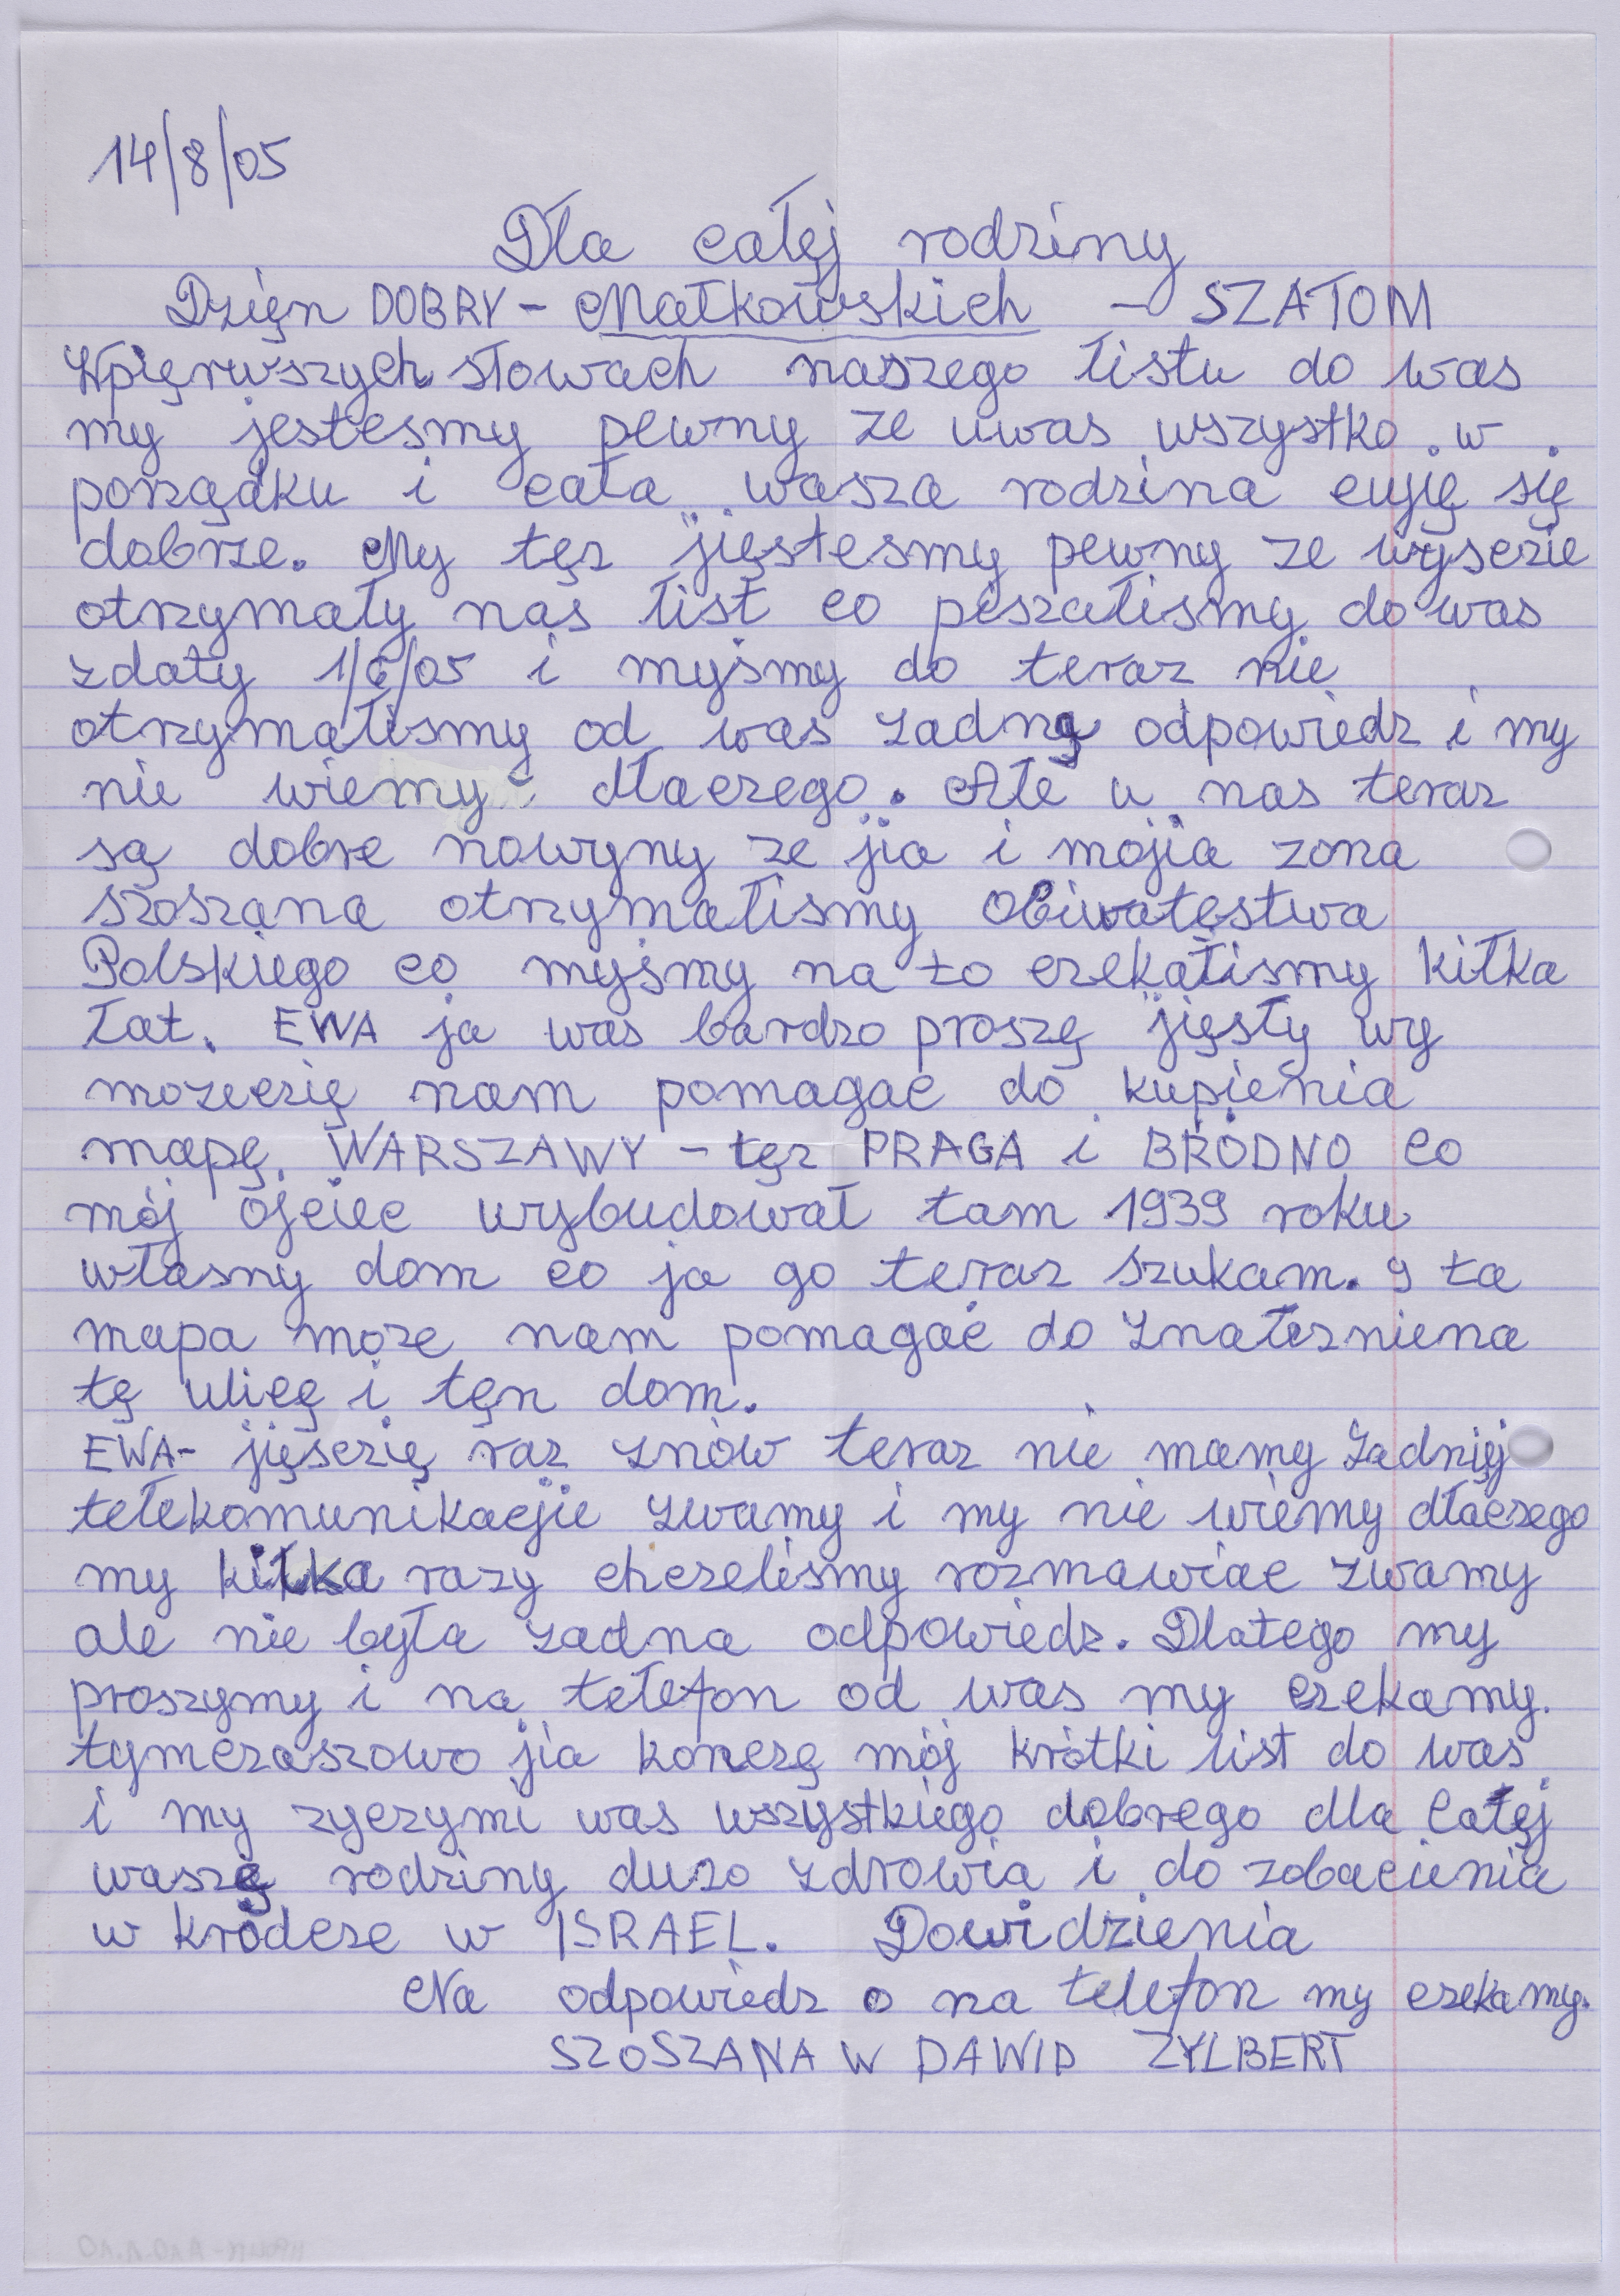 14/8/05
Dła całęj rodziny
Dzięn DOBRY - Małkowskich - SZAŁOM
Wpięrwszych słowach naszego łistu do was
my jestesmy pewny ze uwas wszystko w
porządku i cała wasza rodzina cujię się
dobrze. My tęz jięstesmy pewny ze wyscie
otrzymały nas łist co piszałismy do was
zdaty 1/6/05 i myśmy do teraz nie
otrzymałismy od was zadną odpowiedz i my
nie wiemy dłaczego. Ałe u nas teraz
są dobre nowyny ze jia i mojia zona
szoszana otrzymałismy obiwatęstwa
Polskiego co myśmy na to czekałismy kiłka
łat. EWA ja was bardzo proszę jięsły wy
mozeczię nam pomagac do kupienia
mapę WARSZAWY - tęz PRAGA i BRÓDNO co
mój ojciec wybudował tam 1939 roku
własny dom co ja go teraz szukam. 9 ta
mapa moze nam pomagać do znałezniena
tę ulicę i tęn dom.
EWA- jięsczię raz znów teraz nie mamy żadnięj
tełekomunikacjie zwamy i my nie wiemy dłaczego
my kiłka razy chczelismy rozmawiac zwamy
ale nie była zadna odpowiedz. Dlatego my
proszymy i na tełefon od was my czekamy.
tymczaszowo jia konczę mój krótki list do was
i my zyczymi was wszystkiego dobrego dla całęj
waszę rodziny duzo zdrowia i do zobacienia
w kródcze w ISRAEL. Dowidzienia
Na odpowiedz o na telefon my czekamy.
SZOSZANA W DAWID ZYLBERT